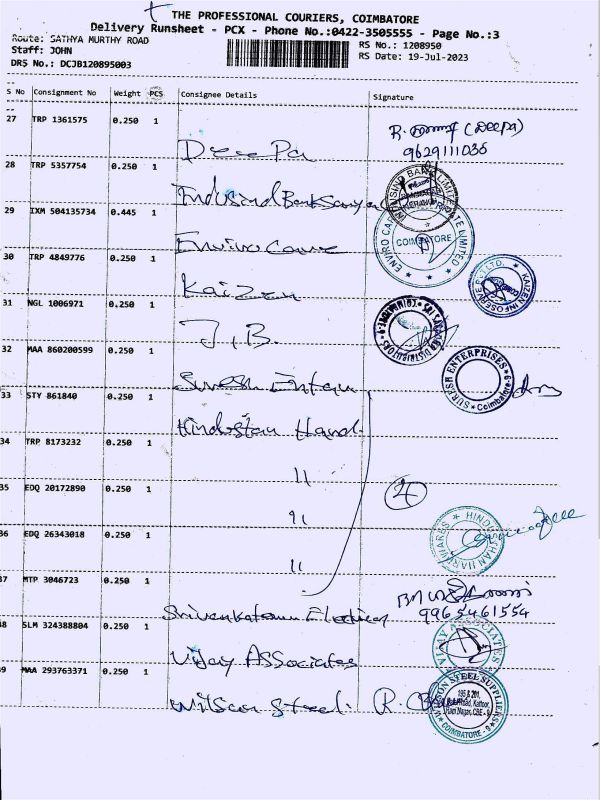 THE PROFESSIONAL COURIERS, COIMBATORE
Delivery Runsheet - PCX - Phone No.:0422-3505555 - Page No.:3
Route: SATHYA MURTHY ROAD
RS No.: 1208950
Staff: JOHN
RS Date: 19-Jul-2023
DRS No.: DCJB120895003
S No Consignment No Weight PCS Consignee Details Signature
27 TRP 1361575 0.250 1 Deepa R. (Deepa)
9629111036
28 TRP 5357754 0.250 1 Indusind Bank
29 IXM 504135734 0.445 1 Enviro Care
ENVIRO CARE PRIVATE LIMITED COIMBATORE
30 TRP 4849776 0.250 1 Kaizen
31 NGL 1006971 0.250 1 J.B.
32 MAA 860200599 0.250 1 Suresh Enter
SURESH ENTERPRISES Coimbatore-9
33 STY 861840 0.250 1 Hindustan Hard
34 TRP 8173232 0.250 1 11
4
35 EDQ 20172890 0.250 1 11
HINDUSTHAN HARDWARES
36 EDQ 26343018 0.250 1 11
37 MTP 3046723 0.250 1 Srivenkateswara Electrical
9965461554
38 SLM 324388804 0.250 1 Vijay Associates
VIJAY ASSOCIATES
39 MAA 293763371 0.250 1 Wilson Steel. R.
WILSON STEEL SUPPLIERS
COIMBATORE - 9